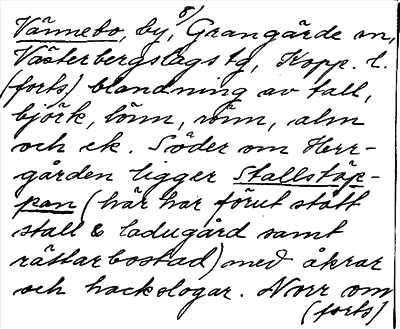 8)
Vännebo, by, Grangärde sn,
Västerbergslags tg, Kopp. l.
(forts) blandning av tall,
björk, lönn, rönn, alm
och ek. Söder om Herr-
gården ligger Stallstäp-
pan (här har förut stått
stall & ladugård samt
rättarbostad) med åkrar
och hackslogar. Norr om
(forts)